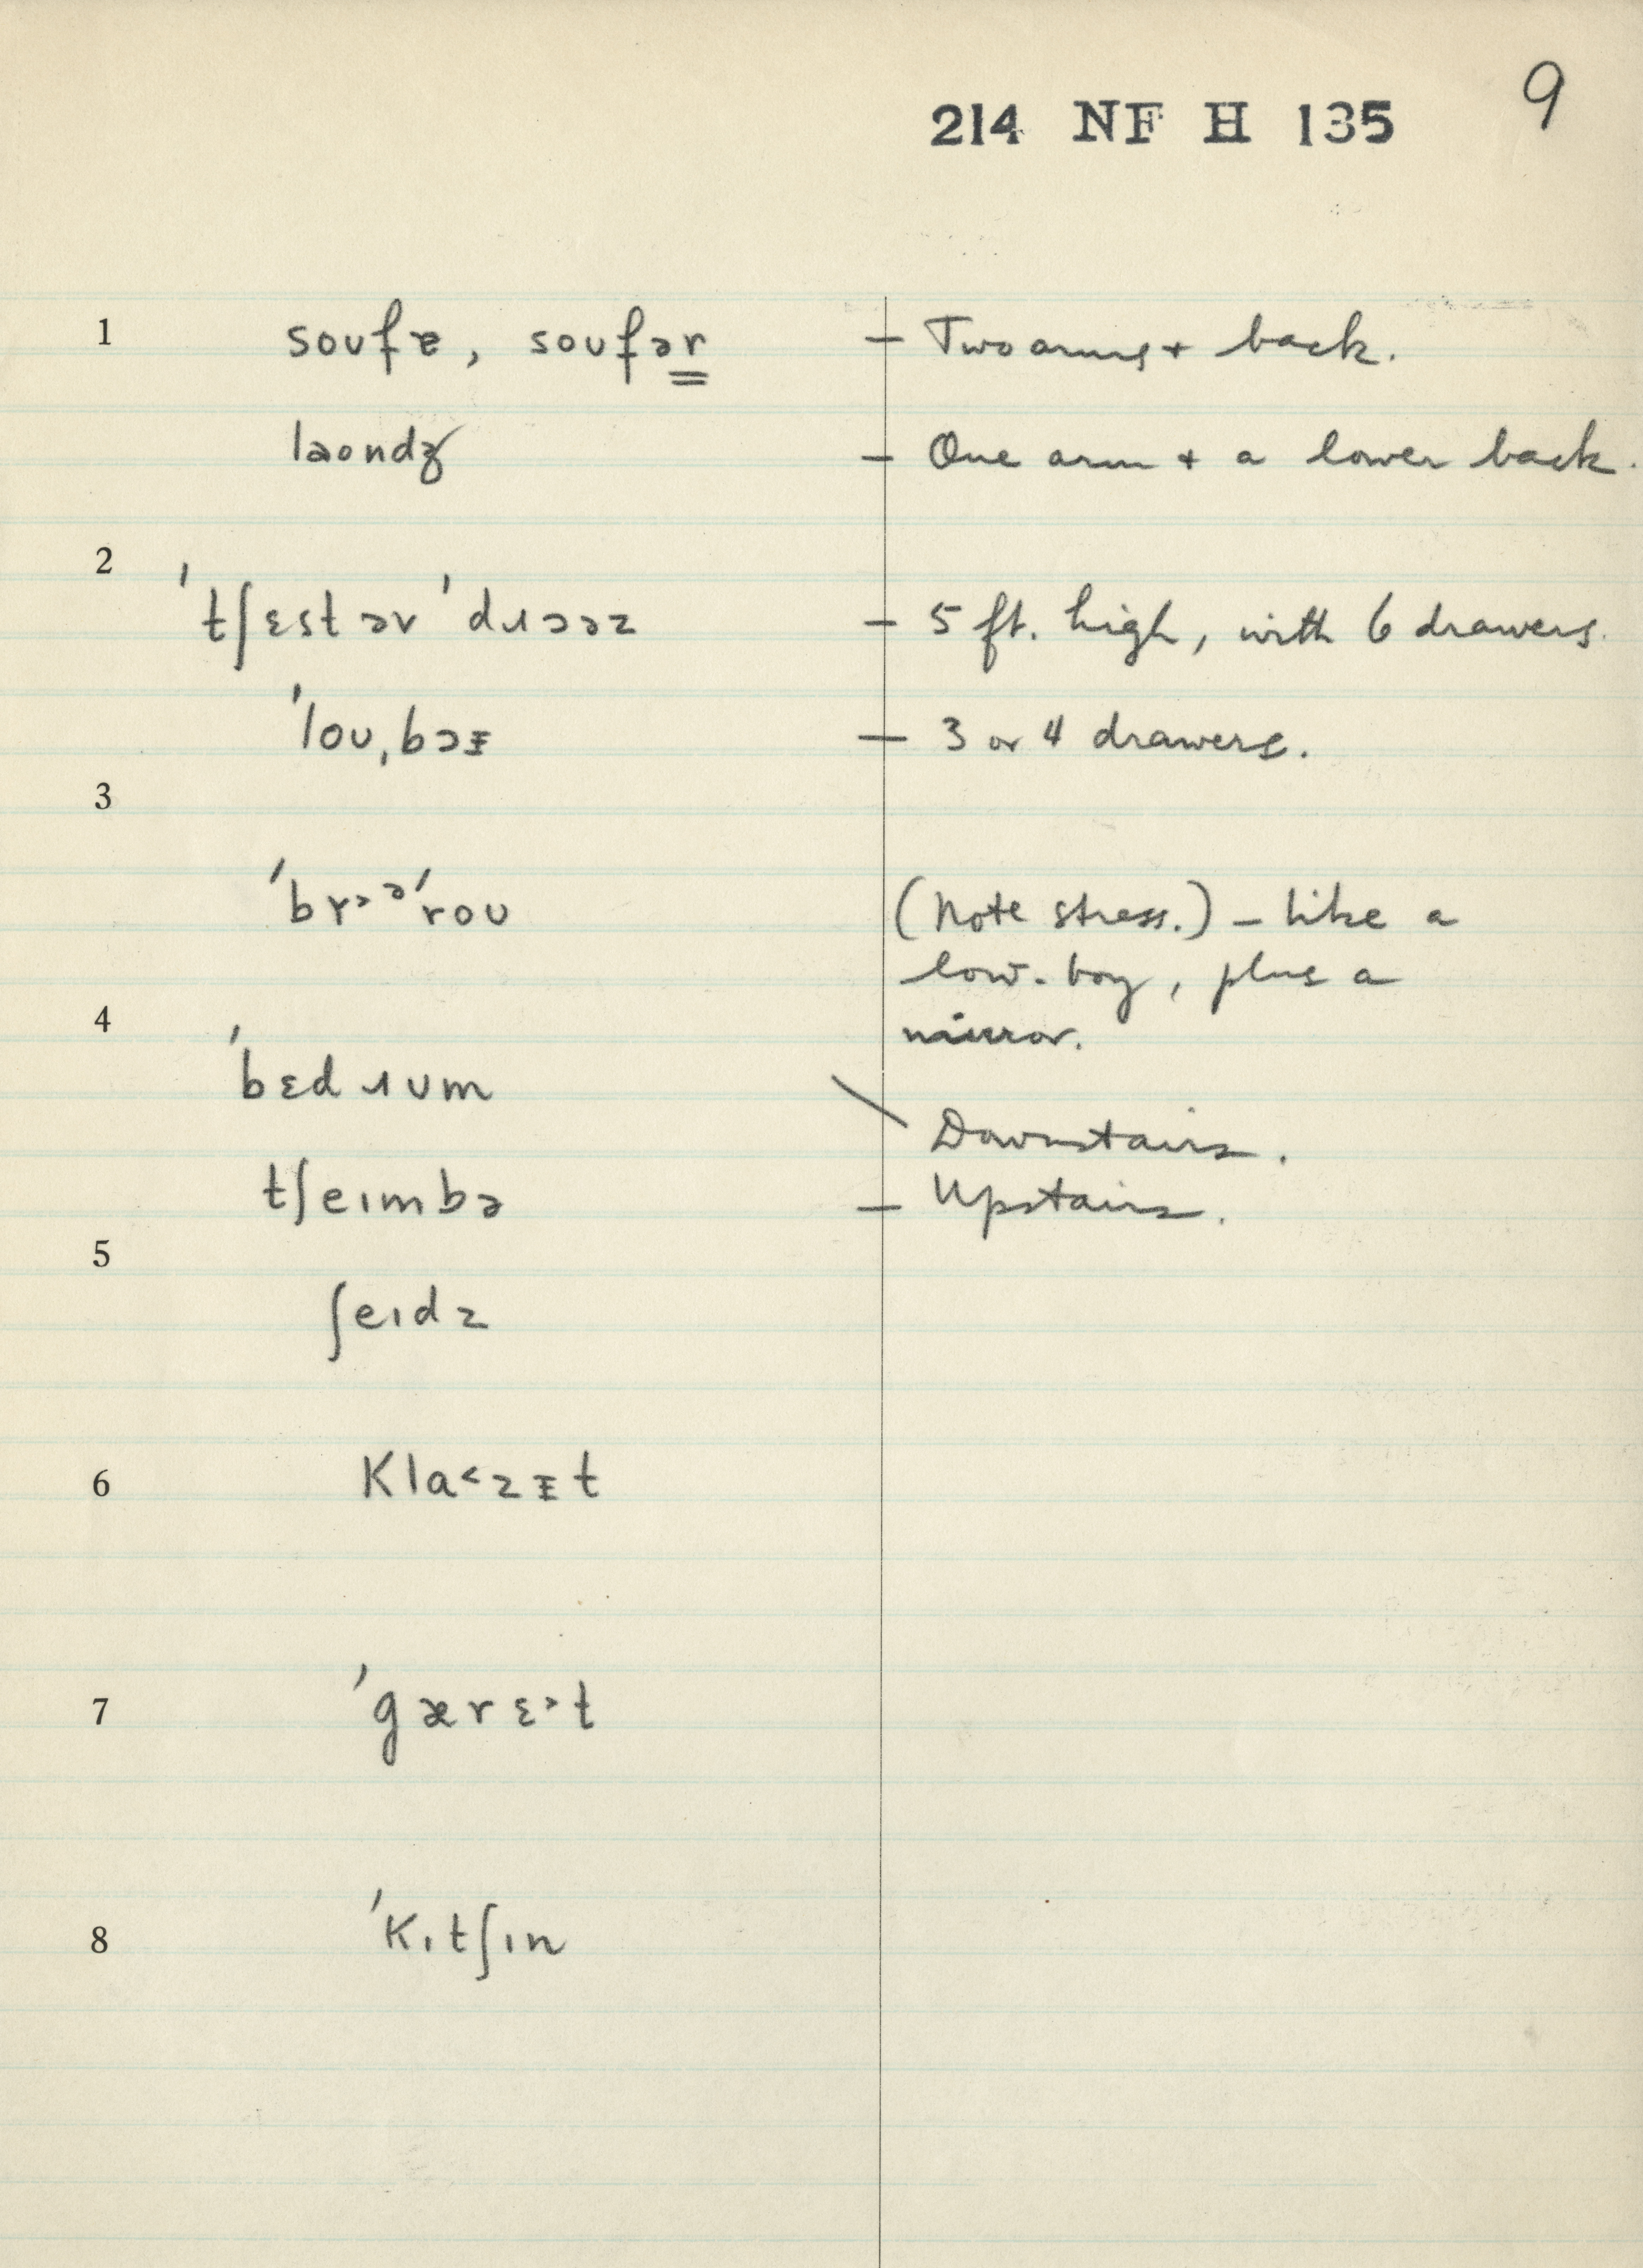 9
214 NF H 135
1 soufɐ, soufər – Two arms + back.
laondʒ – One arm + a lower back.
2
ˈtʃɛst əv ˈdɹɔəz – 5 ft. high, with 6 drawers.
ˈloʊˌbɔɪ – 3 or 4 drawers.
3
(Note stress.) – like a
low-boy, plus a
mirror.
4
ˈbɛdɹʊm \ Downstairs.
tʃeɪmbə – Upstairs.
5
ʃeɪdz
6 kla˂zɪt
7 ˈgærɛ˃t
8 ˈkɪtʃɪn